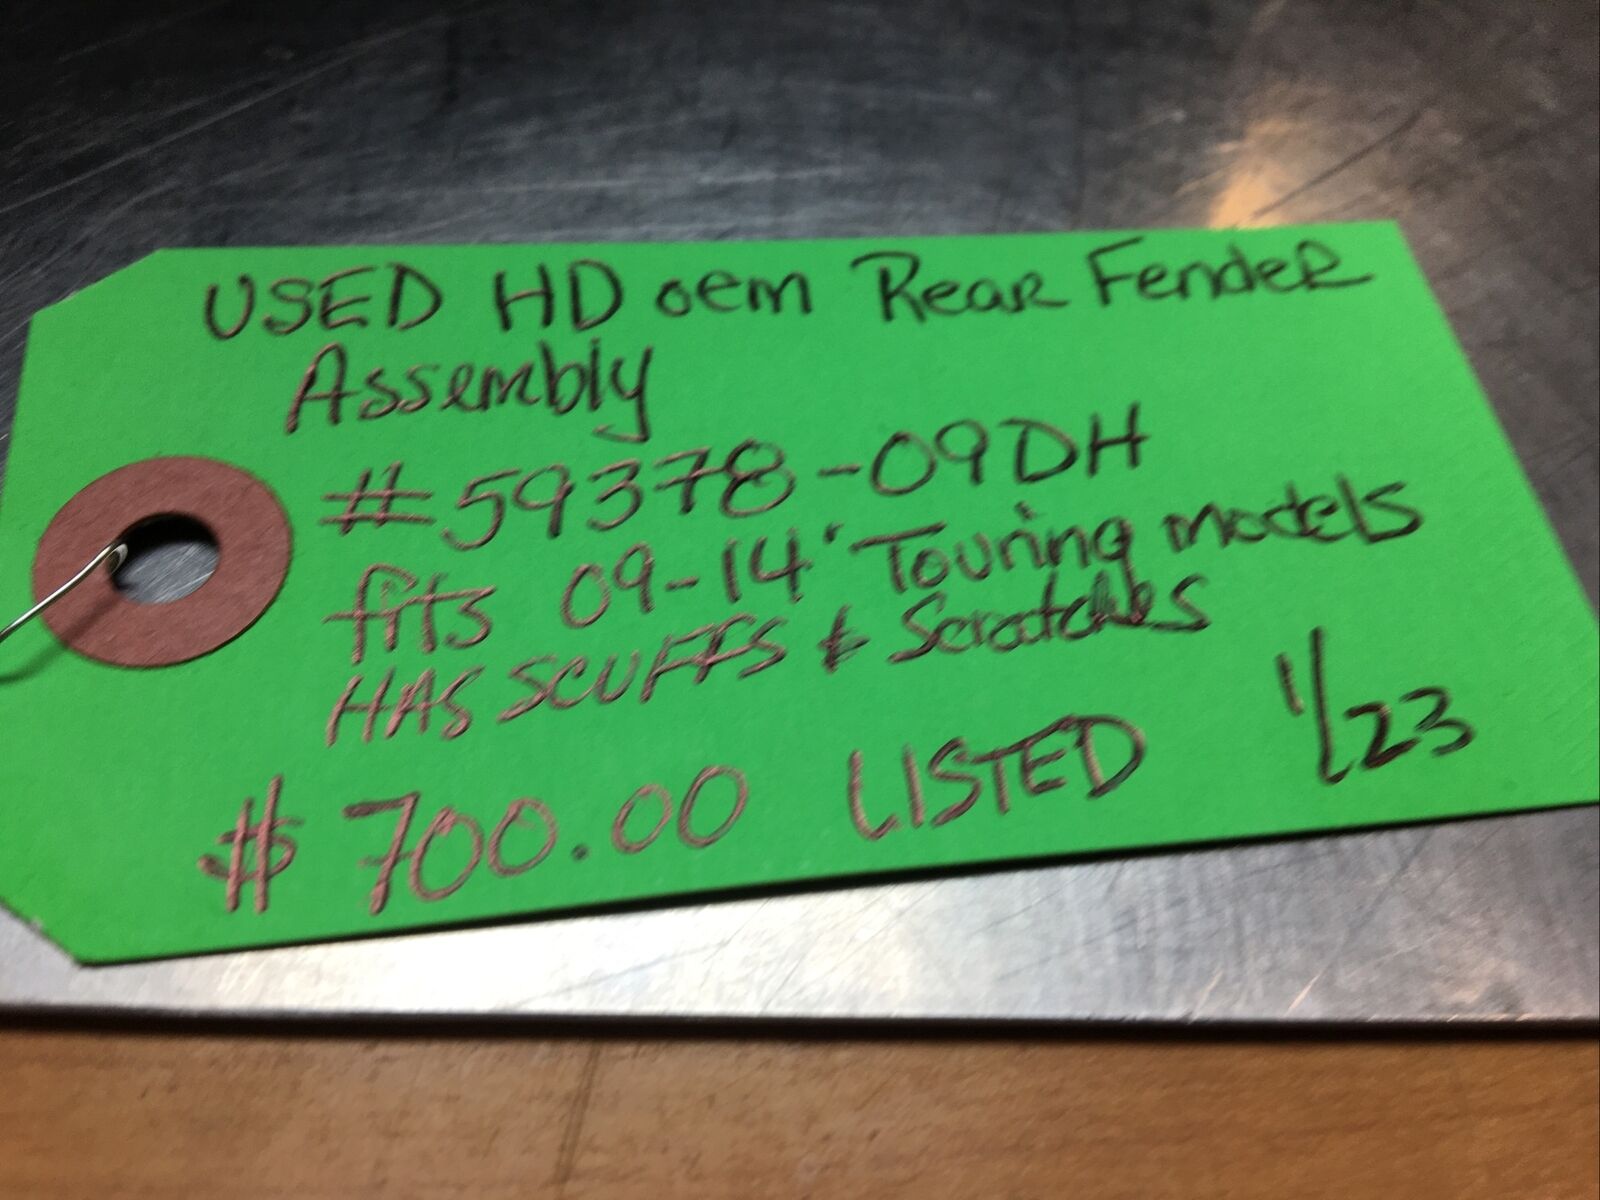 USED HD oem Rear Fender
Assembly
#59378-09DH
fits 09-14' Touring models
HAS SCUFFS & Scratches
$700.00 LISTED 1/23